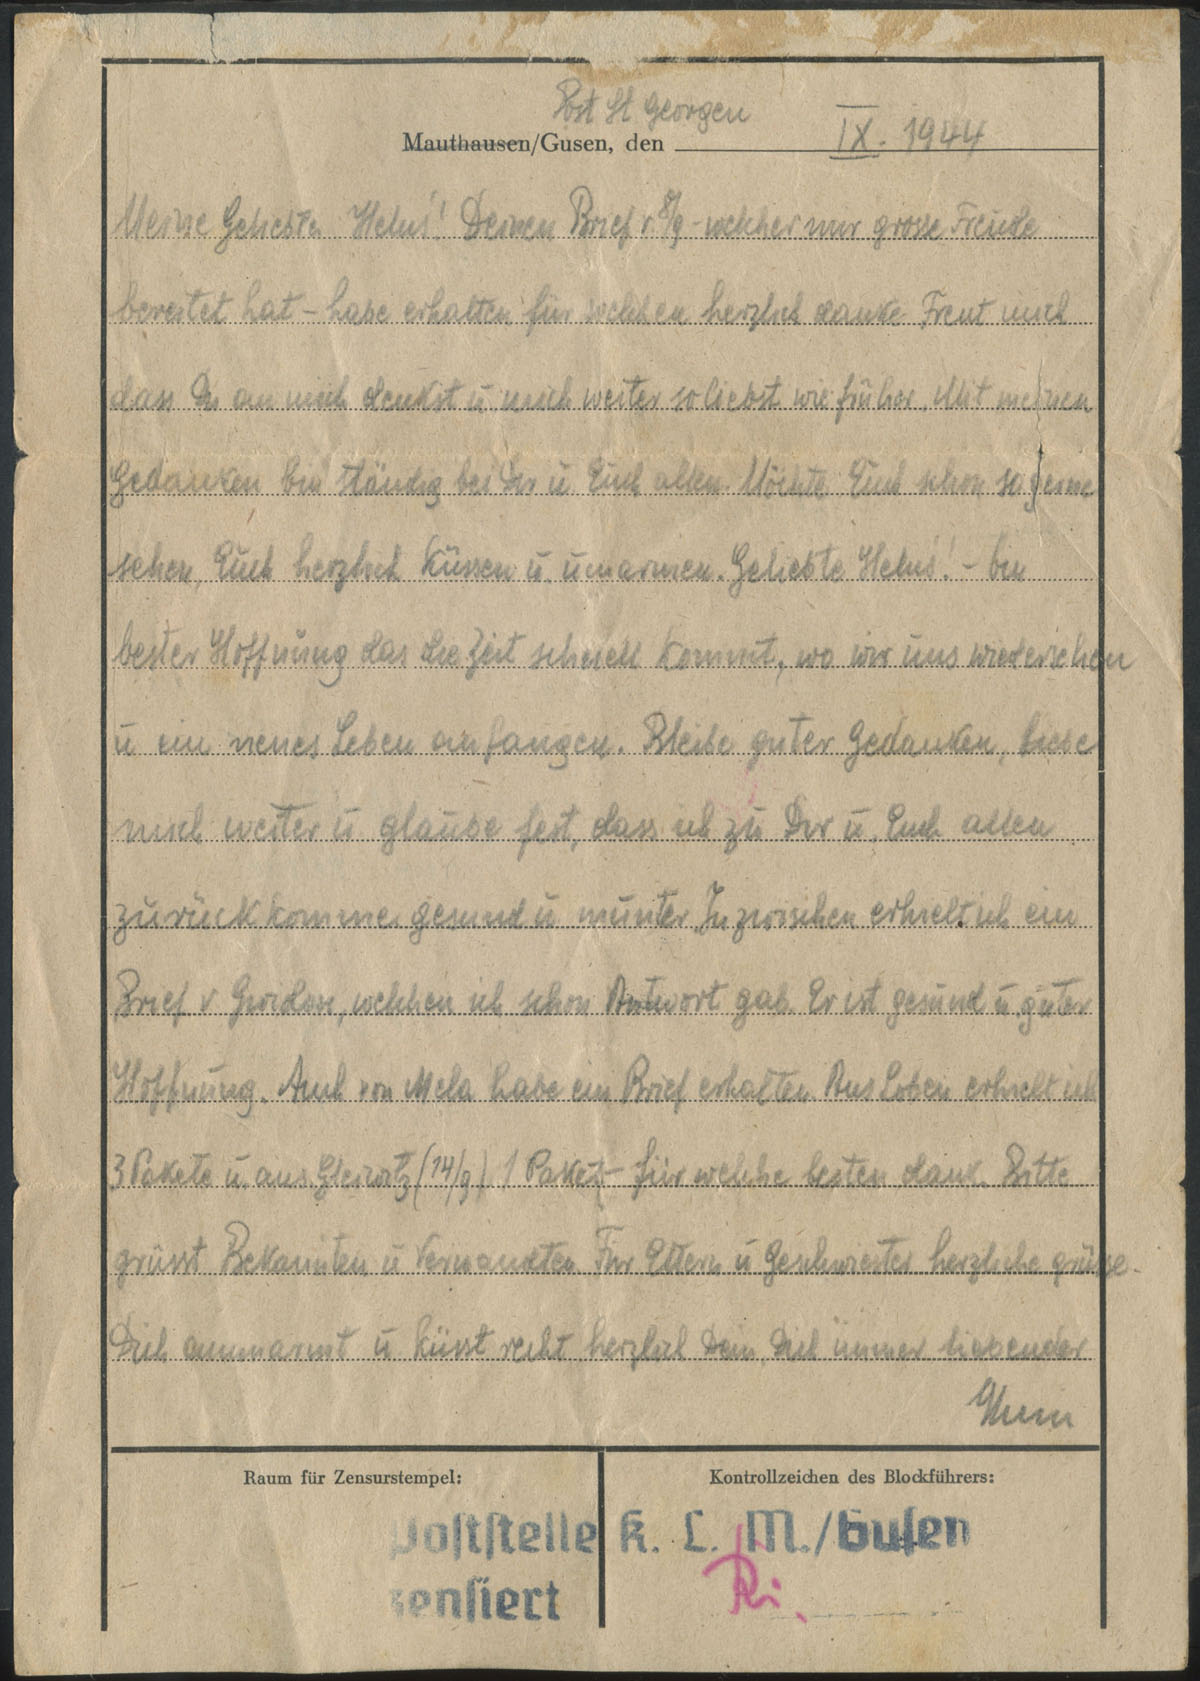 Post St Georgen
Mauthausen/Gusen, den IX. 1944
Meine Geliebte Heluś! Deinen Brief v. 8/9 - welcher mir grosse Freude
bereitet hat - habe erhalten für welchen herzlich danke. Freut mich
dass Du an mich denkst u. mich weiter so liebst wie früher. Mit meinen
Gedanken bin ständig bei Dir u. Euch allen. Möchte Euch schon so gerne
sehen, Euch herzlich küssen u. umarmen. Geliebte Heluś! - bin
bester Hoffnung das die Zeit schnell kommt, wo wir uns wiedersehen
u ein neues Leben anfangen. Bleibe guter Gedanken, liebe
mich weiter u glaube fest, dass ich zu Dir u. Euch allen
zurückkomme gesund u munter. Inzwischen erhielt ich ein
Brief v., welchen ich schon Antwort gab. Er ist gesund u. guter
Hoffnung. Auch von Mela habe ein Brief erhalten. Aus erhielt ich
3 Pakete u. aus Gleiwitz (14/9) 1 Paket - für welche besten dank. Bitte
grüsst Bekannten u Verwandten. Für Eltern u Geschwister herzliche grüsse.
Dich ummarmt u. küsst recht herzlich Dein, Dich immer liebender
Raum für Zensurstempel:
Kontrollzeichen des Blockführers:
Poststelle K. L. M./Gusen
zensiert
Ri.